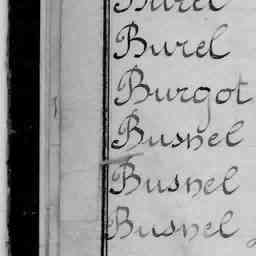 Burel
Burel
Burgot
Busnel
Busnel
Busnel